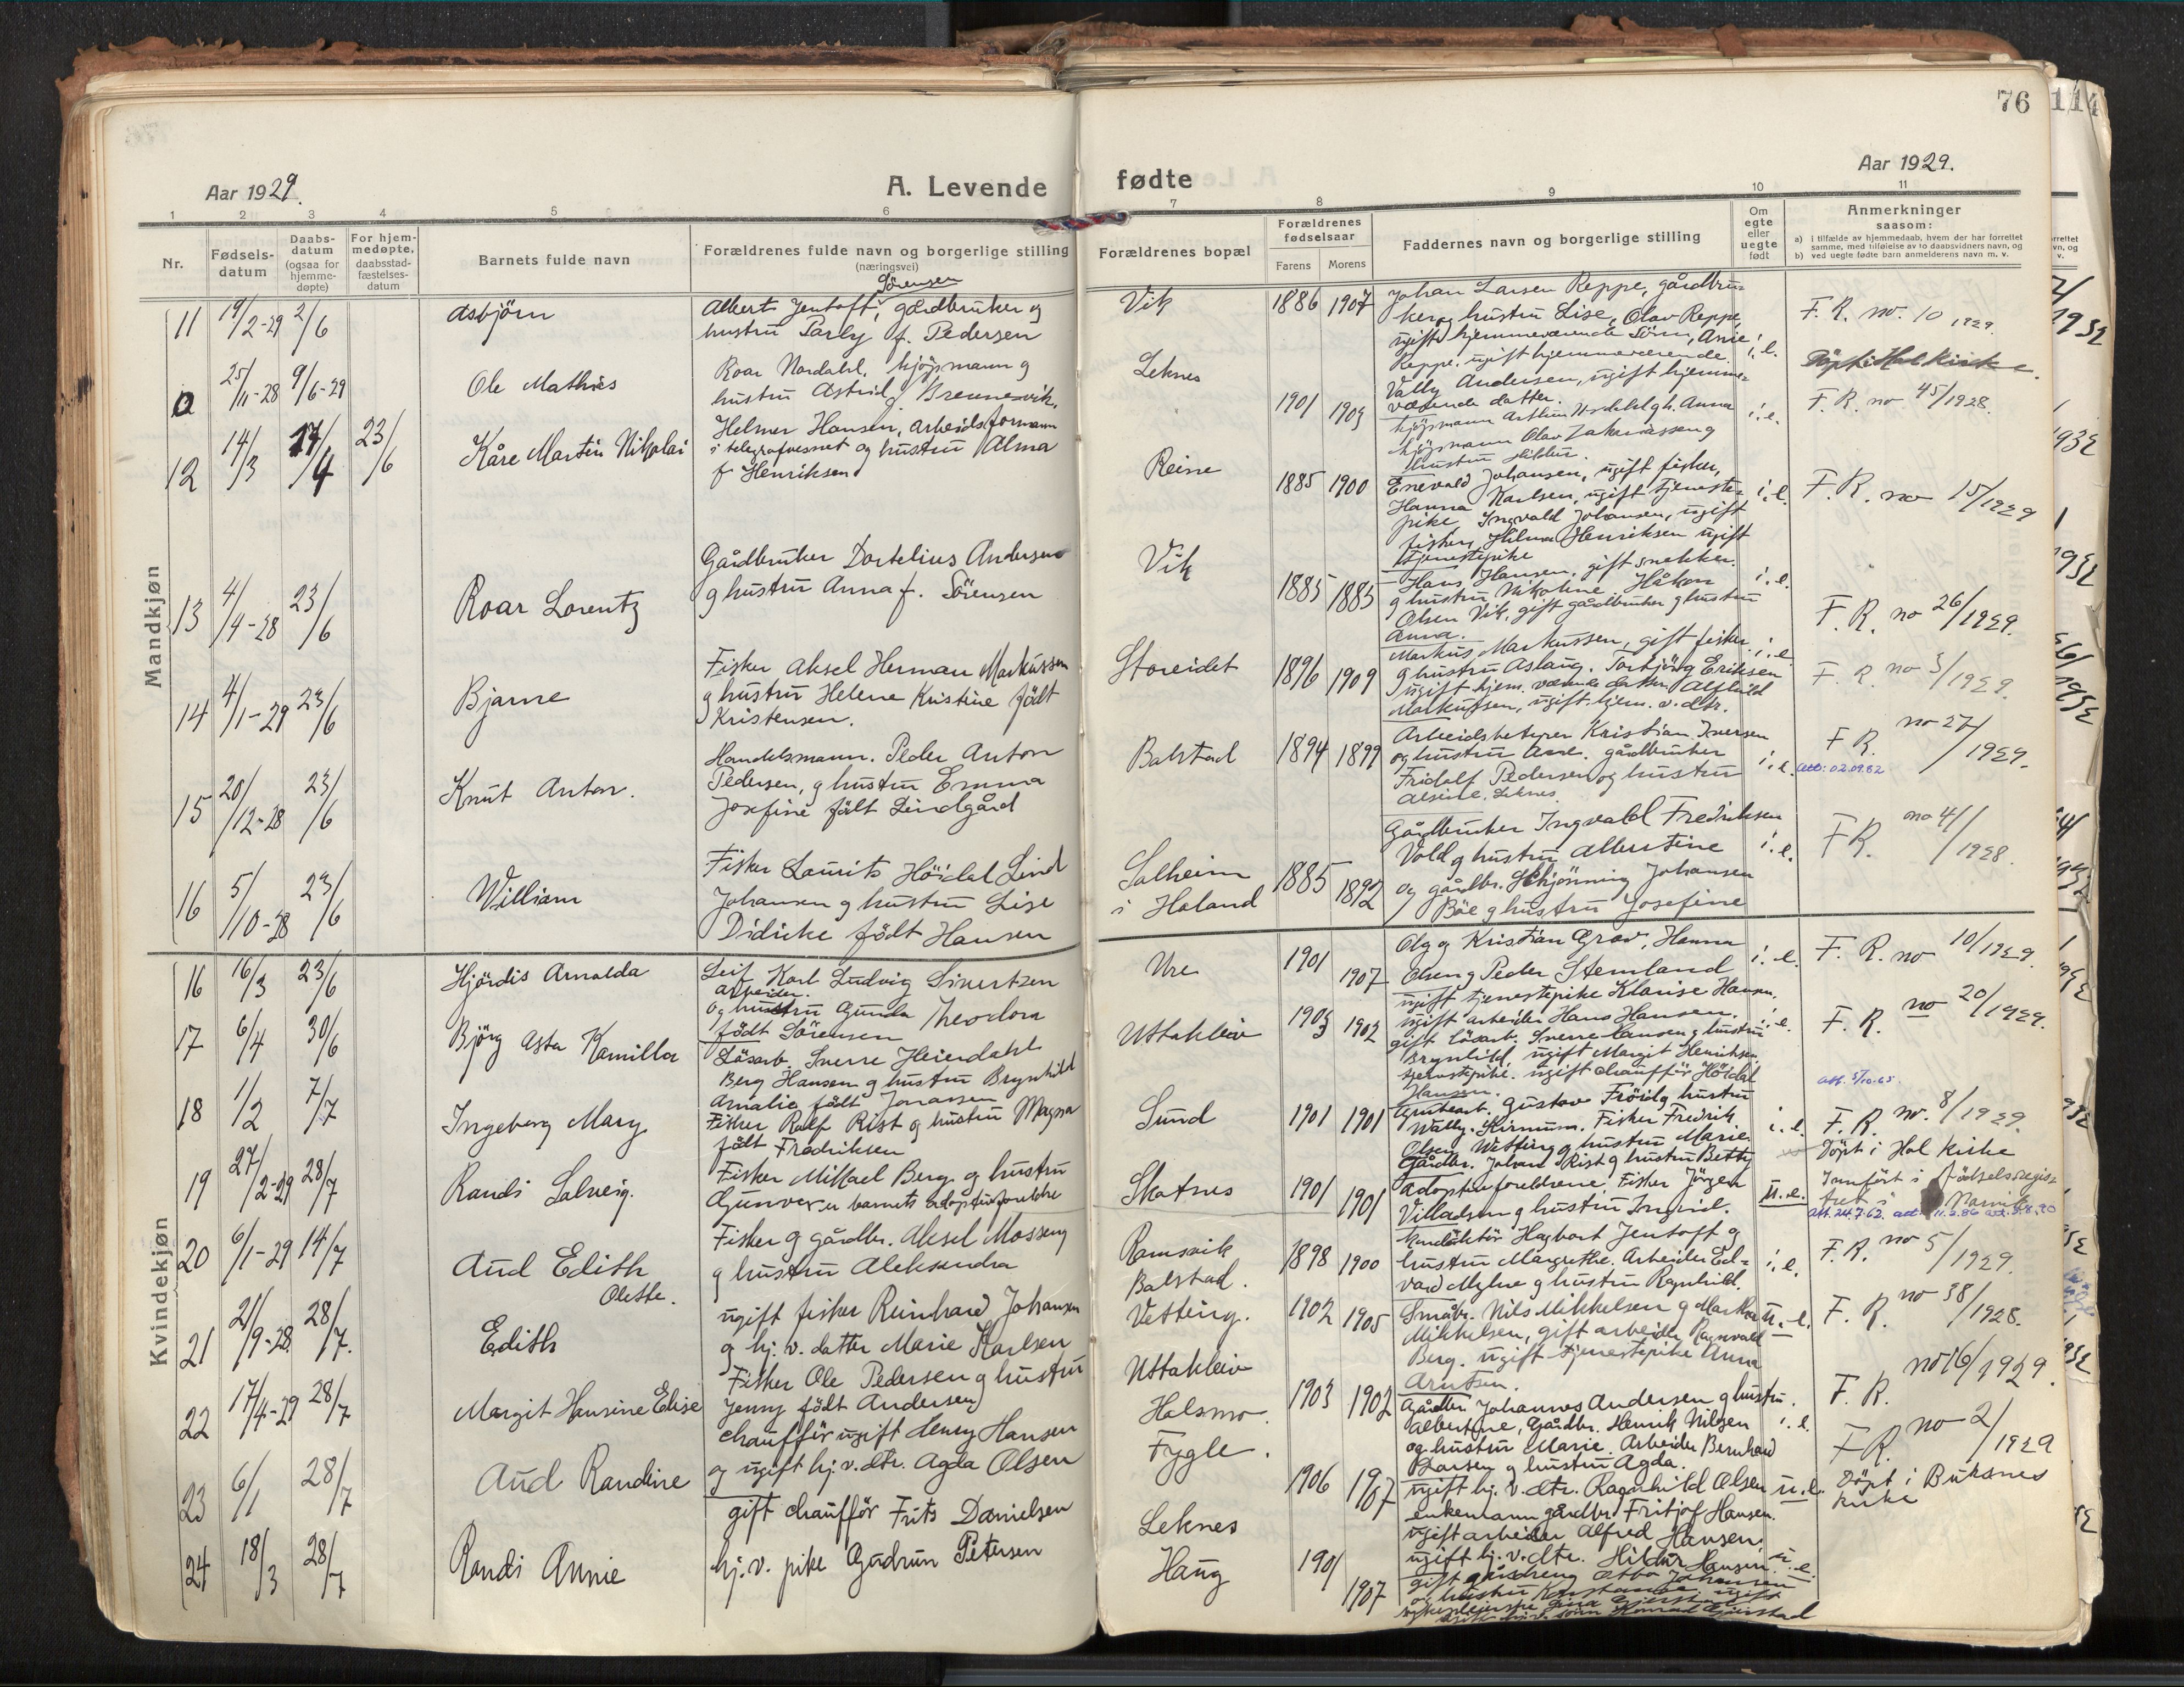 Aar 1929.
A. Levende
1 2 3 4 5 6
Nr.
Fødsels-
datum
Daabs-
datum
(ogsaa for
hjemme-
døpte)
For hjem-
medøpte,
daabsstad-
fæstelses-
datum
Barnets fulde navn
Forældrenes fulde navn og borgerlige stilling
(næringsvei)
Mandkjøn
11 19/2-29 2/6 Asbjörn
Sörensen
Albert Jentoft, gårdbruker og
hustru Parly f. Pedersen
0 25/11-28 9/6-29 Ole Mathies
Roar Nordahl, kjöpmann g
hustru Astrid f. Brennesvik.
12 14/3 17/4 23/6 Kåre Martin Nikolai
Helmer Hansen, arbeidsformann
i telegrafvesnet og hustru Alma
f Henriksen
13 4/4-28 23/6 Roar Lorentz
Gårdbruker Dortelius Andersen
g hustru Anna f. Sörensen
14 4/1-29 23/6 Bjarne
Fisker Aksel Herman Markussen
g hustru Helene Kristine födt
Kristensen.
15 20/12-28 23/6 Knut Anton.
Handelsmann. Peder Anton
Pedersen, g hustru Emma
Josefine födt Lindgård
16 5/10-28 23/6 William
Fisker Laurits Höidal Lind
Johansen g hustru Lise
Didrike födt Hansen
Kvindekjøn
16 16/3 23/6 Hjördis Arnalda
Leif Karl Ludvig Sivertzen
arbeider.
og hustru Gunda Theodora
födt Sörensen
17 6/4 30/6 Björg Asta Kamilla
Lösarb. Sverre Heierdahl
Berg Hansen g hustru Brynhild
Amalie födt Jonassen
18 1/2 7/7 Ingeborg Mary
Fisker Rolf Rist g hustru Magna
födt Fredriksen
19 27/2-29 28/7 Randi Solveig.
Fisker Mikkael Berg og hustru
Gunvor er barnets adoptivforeldre
20 6/1-29 14/7 Aud Edith
Olette.
Fisker g gårdbr. Aksel Mosseng
g hustru Aleksandra
21 21/9-28 28/7. Edith
ugift fisker Reinhard Johansen
g hj. v. datter Marie Karlsen
22 17/4-29 28/7 Margit Hansine Elise
Fisker Ole Pedersen g hustru
Jenny födt Andersen
23 6/1 28/7 Aud Randine
chafför ugift Henry Hansen
og ugift hj. v. dtr. Agda Olsen
24 18/3 28/7 Randi Annie
gift chafför Frits Danielsen
hj. v. pike Gudrun Petersen
76
fødte
Aar 1929.
7 8 9 10 11
Forældrenes bopæl
Forældrenes
fødselsaar
Farens Morens
Faddernes navn og borgerlige stilling
Om
egte
eller
uegte
født
Anmerkninger
saasom:
a) i tilfælde av hjemmedaab, hvem der har forrettet
samme, med tilføielse av to daabsvidners navn, og
b) ved uegte fødte barn anmelderens navn m. v.
Vik 1886 1907
Johan Larsen Reppe, gårdbru-
ker g hustru Lise, Olav Reppe,
ugift hjemmeværende Sönn, Anie
Reppe. ugift hjemmeværende. i. l.
F. R. no. 10 1929.
Leknes 1901 1909
Vally Andersen, ugift hjemme-
værende datter.
kjöpmann Olav Zakariassen g
hustru i. l.
Döpt i Hol kirke.
F. R. no 45/1928.
Reine 1885 1900
Enevald Johansen, ugift fisker,
Hanna Karlsen, ugift tjeneste-
pike Ingvald Johansen, ugift
fisker, Hilma Henriksen ugift
tjenestepike i. l.
F. R. no 15/1929
Vik 1885 1885
Hans Hansen, gift snekker
g hustru Nikoline Håkon
Olsen Vik, gift gårdbruker g hustru
Anna. i. l.
F. R. no 26/1929.
Storeidet 1896 1909
Markus Markussen, gift fisker.
g hustru Aslaug. Torbjörg Eriksen
ugift hjem. værende datter, Alfhild
Markussen, ugift hjem. v. dtr. i. l.
F. R. no 3/1929.
Balstad 1894 1899
Arbeidsbetyrer Kristian Iversen
og hustru Ane. gårdbruker
Fridolf Pedersen og hustru
Alsine. Leknes i. l.
F R. no 27/1929.
att: 02.09.82
Solheim
i Holand 1885 1892
Gårdbruker Ingvald Fredriksen
Vold g hustru Albertine
og gårdbr. Johansen
Böe g hustru Josefine i. l.
F R. no 41/1928.
Ure 1901 1907
Olg g Kristian Grav, Hanna
Olsen g Peder Stemland i. l.
F. R. no 10/1929.
Uttakleiv 1903 1902
ugift tjenestepike Klarise Hansen,
ugift arbeider Hans Hansen.
gift lösarb. Sverre Hansen g hustru
Brynhild, ugift Margit Henriksen
tjenestepike. ugift chafför Höidal
Hansen. i. l.
F. R. no 20/1929.
att. 5/10-65
Sund 1901 1901
Gustav Fröis g hustru
Wally. Fisker Fredrik
Olsen Wetting g hustru Marie.
Gårdbr. Johan Rist g hustru Betty i. l.
F. R. no. 8/1929.
Döpt i Hol kirke
Skatnes 1901 1901
Adoptivforeldrene, Fisker Jörgen
Villadsen g hustru Ingrid. u. e.
Innfört i födselsregis-
tret i Narvik
att. 24.7.62.
Ramsvik
Balstad. 1898 1900
Konduktör Hagbart Jentoft g
hustru Margrethe. Arbeider Ed-
vard Myhre g hustru Ragnhild. i. l.
F. R. no 5/1929.
Vetting. 1902 1905
Småbr. Nils Mikkelsen g Martha
Mikkelsen, gift arbeider Ragnvald
Berg. ugift tjenestepike Anna
Arntsen. u. e.
F. R. no 38/1928.
Uttakleiv
Holsmo. 1903 1902
Gårdbr. Johannes Andersen g hustru.
Albertine, Gårdbr. Henrik Nilsen
og hustru Marie. Arbeider Bernhard
Larsen g hustru Agda. i. l.
F. R. no 16/1929.
Fygle. 1906 1907
ugift hj. v. dtr. Ragnhild Olsen
enkemann gårdbr. Fritjof Hansen.
ugift arbeider Alfred Hansen. u. e.
F R. no 2/1929
Döpt i Buksnes
kirke
Leknes
Haug 1901 1907
ugift hj. v. dtr. Hildur Hansen
gift Johansen
g hustru Konstanse, ugift
u. e.
114